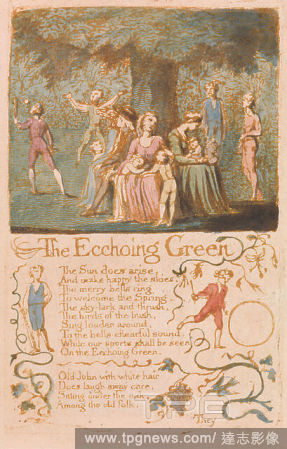 The Ecchoing Green
The Sun does arise,
And make happy the skies.
The merry bells ring
To welcome the Spring.
The sky-lark and thrush,
The birds of the bush,
Sing louder around,
To the bells chearful sound.
While our sports shall be seen
On the Ecchoing Green.
Old John with white hair
Does laugh away care,
Sitting under the oak,
Among the old folk,
They
TPG
www.tpgnews.com / 達志影像